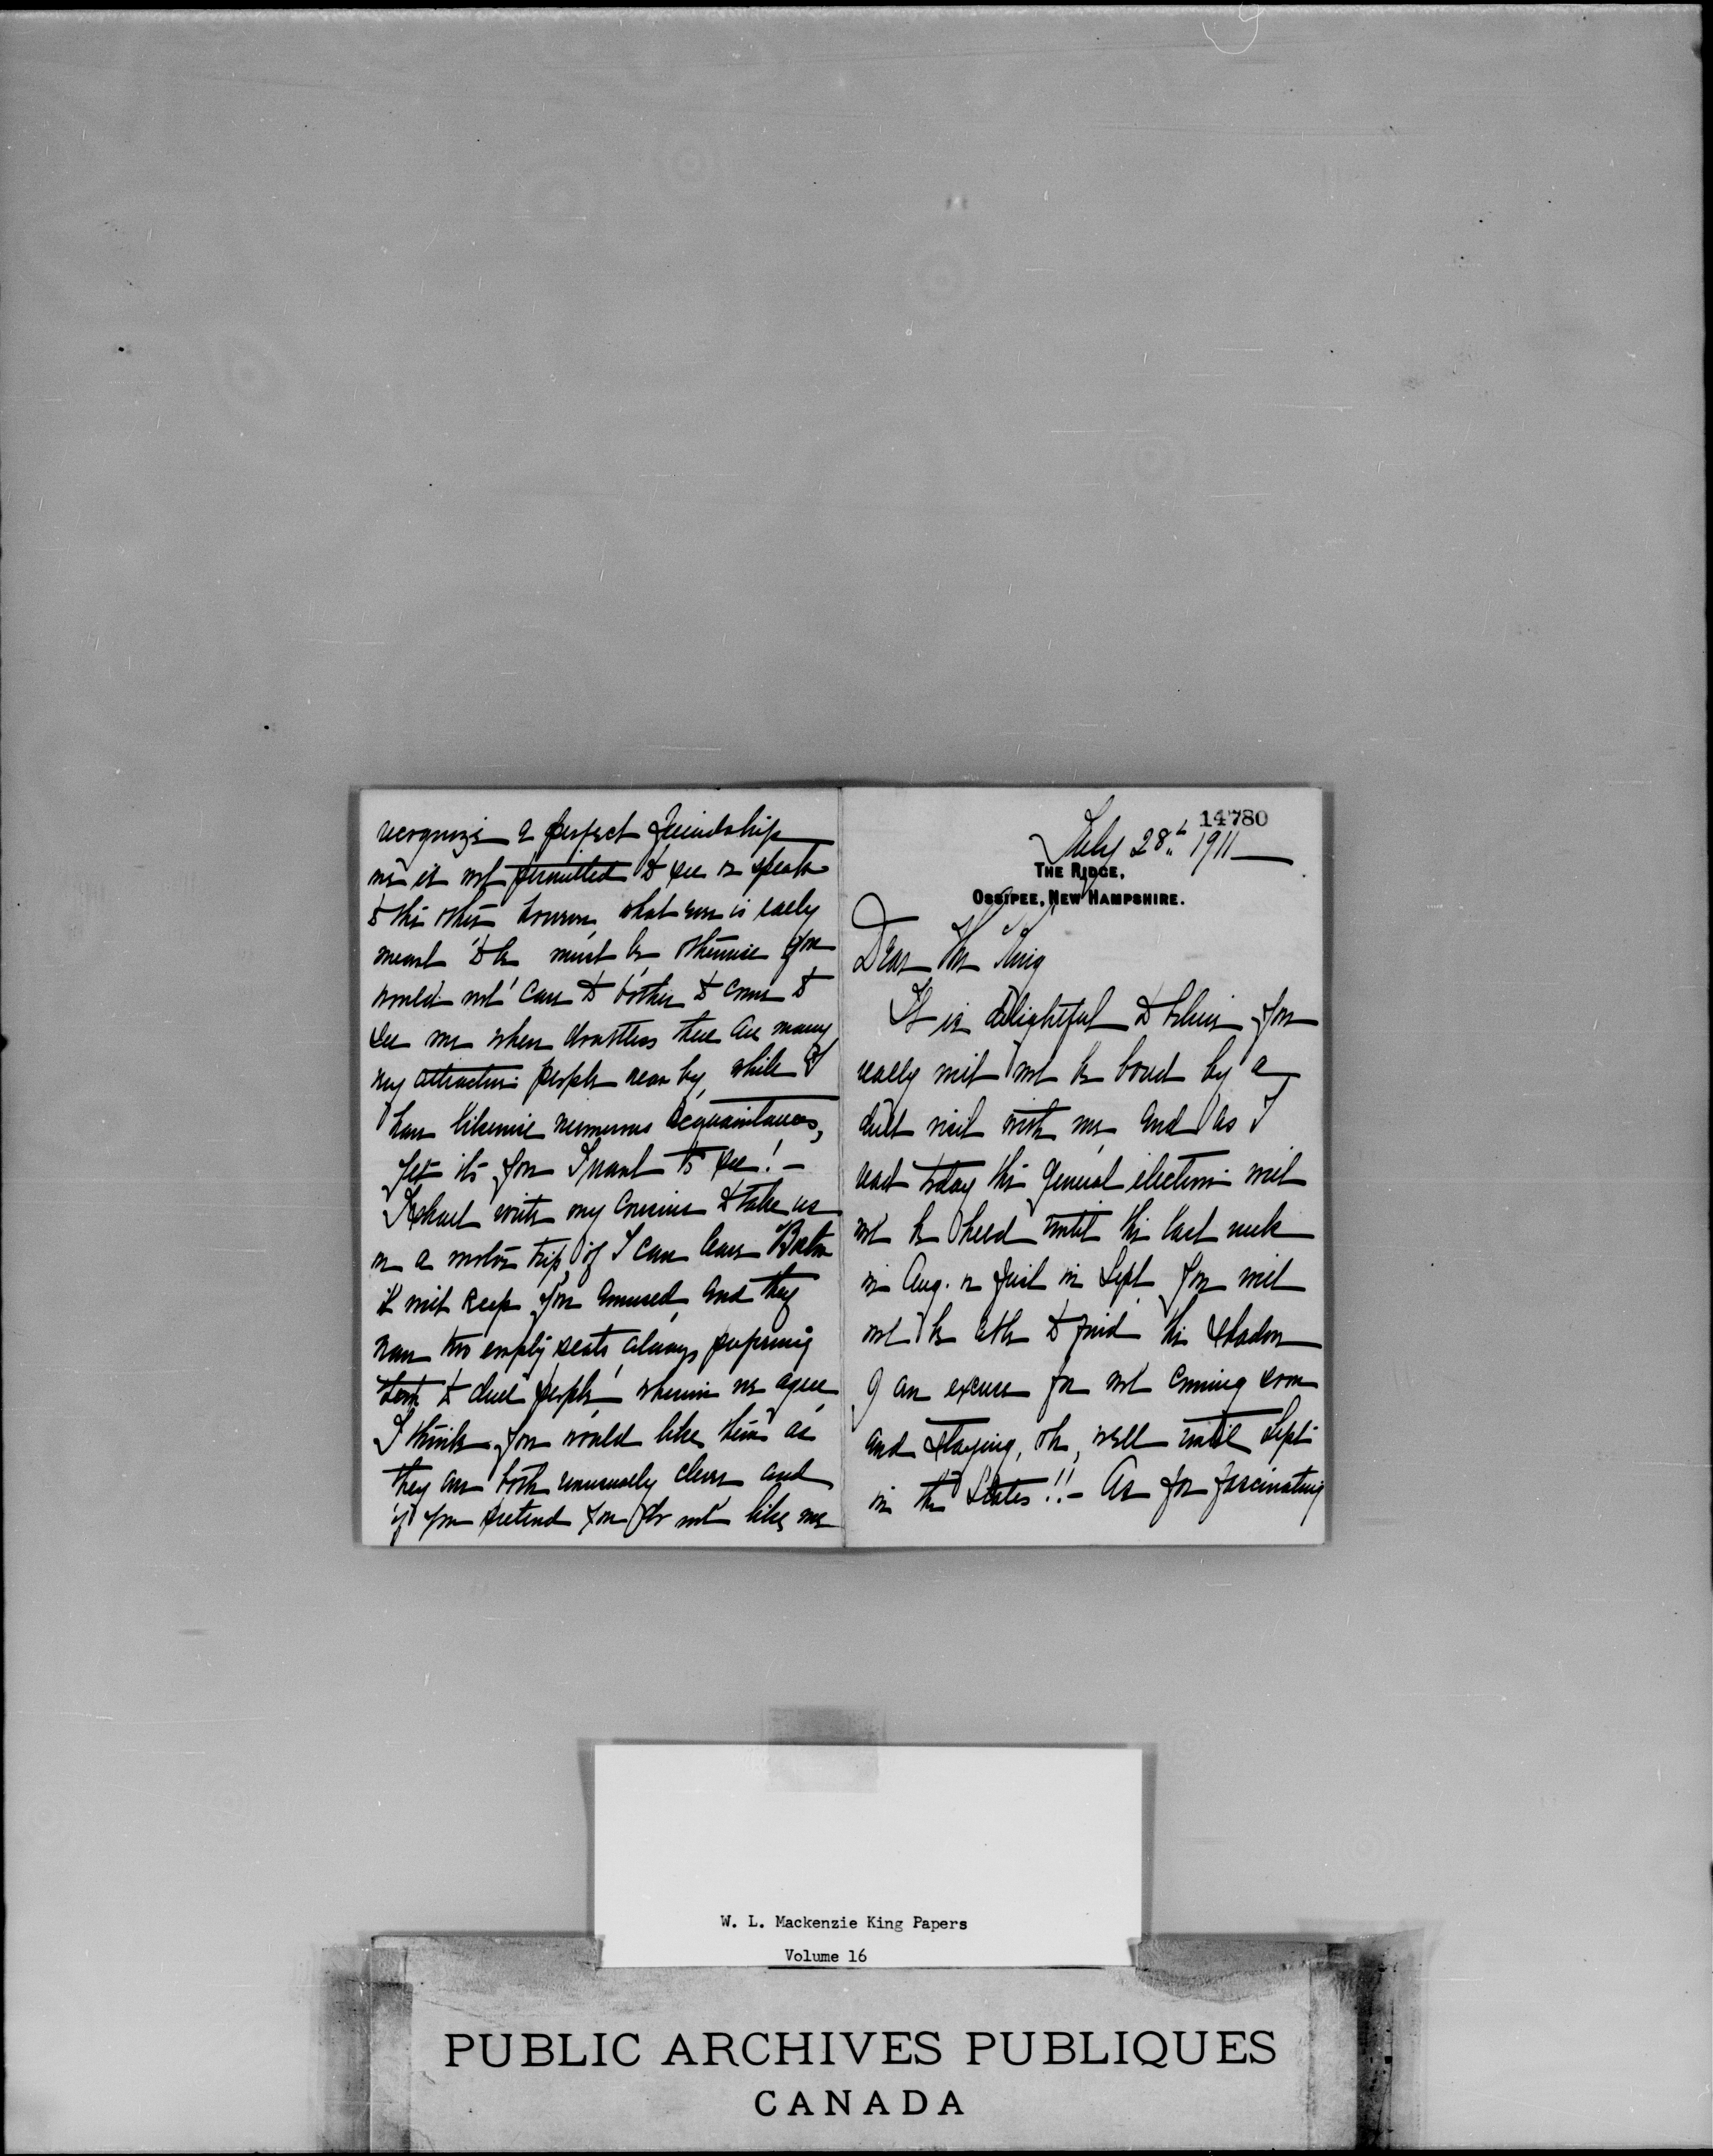 14780
July 28th 1911
THE RIDGE,
OSSIPEE, NEW HAMPSHIRE.
Dear Mr King
It is delightful to believe you
really will not be bored by a
dull visit with me and as I
read today the general election will
not be held until the last week
in Aug. or first in Sept you will
not be able to find the shadow
of an excuse for not coming soon
and staying, oh, well until Sept
in the States!! - As for fascinating
recognize a perfect friendship
is not permitted to see or speak
to the other however, what one is really
meant to be must be otherwise you
would not care to bother to come to
see me when doubtless there are many
very attractive people near by, while I
have likewise numerous acquaintances,
yet its you I want to see! -
I shall write my cousins to take us
on a motor trip if I can leave Boston
it will keep you amused and they
have two empty seats always preferring
to dull people wherein we agree
I think you would like them as
they are both unusually clever and
if you pretend you do not like me
W. L. Mackenzie King Papers
Volume 16
PUBLIC ARCHIVES PUBLIQUES
CANADA